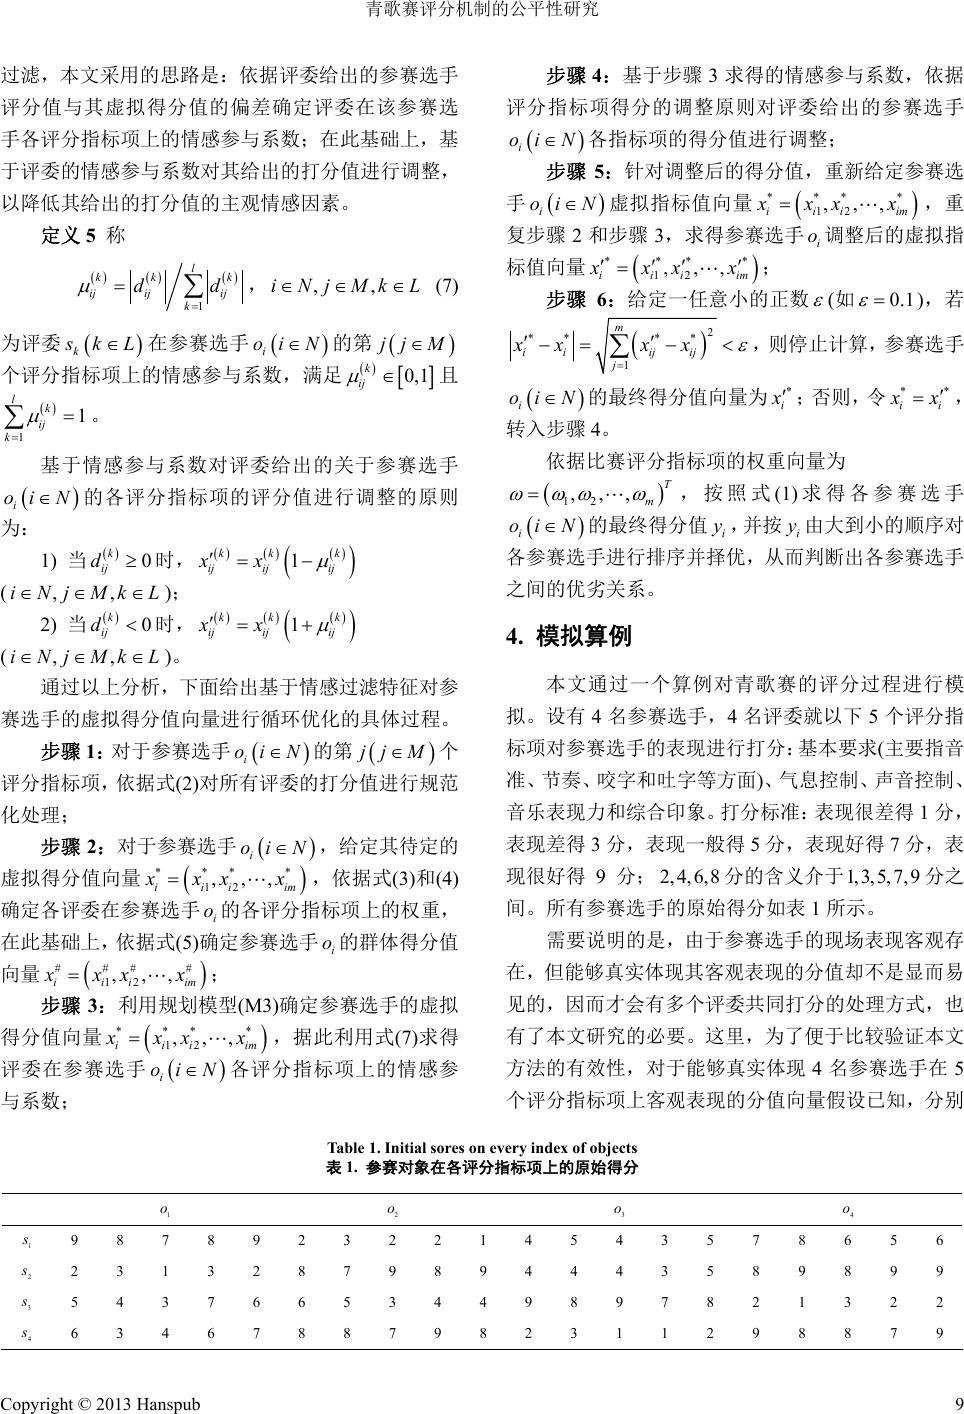 青歌赛评分机制的公平性研究
过滤，本文采用的思路是：依据评委给出的参赛选手
评分值与其虚拟得分值的偏差确定评委在该参赛选
手各评分指标项上的情感参与系数；在此基础上，基
于评委的情感参与系数对其给出的打分值进行调整，
以降低其给出的打分值的主观情感因素。
定义 5 称
μ_{ij}^{(k)} = d_{ij}^{(k)} / ∑_{k=1}^{l} d_{ij}^{(k)}，i∈N, j∈M, k∈L (7)
为评委 s_k (k∈L) 在参赛选手 o_i (i∈N) 的第 j (j∈M)
个评分指标项上的情感参与系数，满足 μ_{ij}^{(k)} ∈ [0,1] 且
∑_{k=1}^{l} μ_{ij}^{(k)} = 1。
基于情感参与系数对评委给出的关于参赛选手
o_i (i∈N) 的各评分指标项的评分值进行调整的原则
为：
1) 当 d_{ij}^{(k)} ≥ 0 时，x′_{ij}^{(k)} = x_{ij}^{(k)} (1 − μ_{ij}^{(k)})
(i∈N, j∈M, k∈L);
2) 当 d_{ij}^{(k)} < 0 时，x′_{ij}^{(k)} = x_{ij}^{(k)} (1 + μ_{ij}^{(k)})
(i∈N, j∈M, k∈L)。
通过以上分析，下面给出基于情感过滤特征对参
赛选手的虚拟得分值向量进行循环优化的具体过程。
步骤 1：对于参赛选手 o_i (i∈N) 的第 j (j∈M) 个
评分指标项，依据式(2)对所有评委的打分值进行规范
化处理；
步骤 2：对于参赛选手 o_i (i∈N)，给定其待定的
虚拟得分值向量 x_i^* = (x_{i1}^*, x_{i2}^*, ⋯, x_{im}^*)，依据式(3)和(4)
确定各评委在参赛选手 o_i 的各评分指标项上的权重，
在此基础上，依据式(5)确定参赛选手 o_i 的群体得分值
向量 x_i^# = (x_{i1}^#, x_{i2}^#, ⋯, x_{im}^#)；
步骤 3：利用规划模型(M3)确定参赛选手的虚拟
得分值向量 x_i^* = (x_{i1}^*, x_{i2}^*, ⋯, x_{im}^*)，据此利用式(7)求得
评委在参赛选手 o_i (i∈N) 各评分指标项上的情感参
与系数；
步骤 4：基于步骤 3 求得的情感参与系数，依据
评分指标项得分的调整原则对评委给出的参赛选手
o_i (i∈N) 各指标项的得分值进行调整；
步骤 5：针对调整后的得分值，重新给定参赛选
手 o_i (i∈N) 虚拟指标值向量 x_i^* = (x_{i1}^*, x_{i2}^*, ⋯, x_{im}^*)，重
复步骤 2 和步骤 3，求得参赛选手 o_i 调整后的虚拟指
标值向量 x′_i^* = (x′_{i1}^*, x′_{i2}^*, ⋯, x′_{im}^*)；
步骤 6：给定一任意小的正数 ε (如 ε = 0.1)，若
x′_i^* − x_i^* = √(∑_{j=1}^{m} (x′_{ij}^* − x_{ij}^*)^2) < ε，则停止计算，参赛选手
o_i (i∈N) 的最终得分值向量为 x′_i^*；否则，令 x_i^* = x′_i^*，
转入步骤 4。
依据比赛评分指标项的权重向量为
ω = (ω_1, ω_2, ⋯, ω_m)^T，按照式(1)求得各参赛选手
o_i (i∈N) 的最终得分值 y_i，并按 y_i 由大到小的顺序对
各参赛选手进行排序并择优，从而判断出各参赛选手
之间的优劣关系。
4. 模拟算例
本文通过一个算例对青歌赛的评分过程进行模
拟。设有 4 名参赛选手，4 名评委就以下 5 个评分指
标项对参赛选手的表现进行打分：基本要求(主要指音
准、节奏、咬字和吐字等方面)、气息控制、声音控制、
音乐表现力和综合印象。打分标准：表现很差得 1 分，
表现差得 3 分，表现一般得 5 分，表现好得 7 分，表
现很好得 9 分；2,4,6,8 分的含义介于 1,3,5,7,9 分之
间。所有参赛选手的原始得分如表 1 所示。
需要说明的是，由于参赛选手的现场表现客观存
在，但能够真实体现其客观表现的分值却不是显而易
见的，因而才会有多个评委共同打分的处理方式，也
有了本文研究的必要。这里，为了便于比较验证本文
方法的有效性，对于能够真实体现 4 名参赛选手在 5
个评分指标项上客观表现的分值向量假设已知，分别
Table 1. Initial sores on every index of objects
表 1. 参赛对象在各评分指标项上的原始得分
o_1 o_2 o_3 o_4
s_1 9 8 7 8 9 2 3 2 2 1 4 5 4 3 5 7 8 6 5 6
s_2 2 3 1 3 2 8 7 9 8 9 4 4 4 3 5 8 9 8 9 9
s_3 5 4 3 7 6 6 5 3 4 4 9 8 9 7 8 2 1 3 2 2
s_4 6 3 4 6 7 8 8 7 9 8 2 3 1 1 2 9 8 8 7 9
Copyright © 2013 Hanspub 9